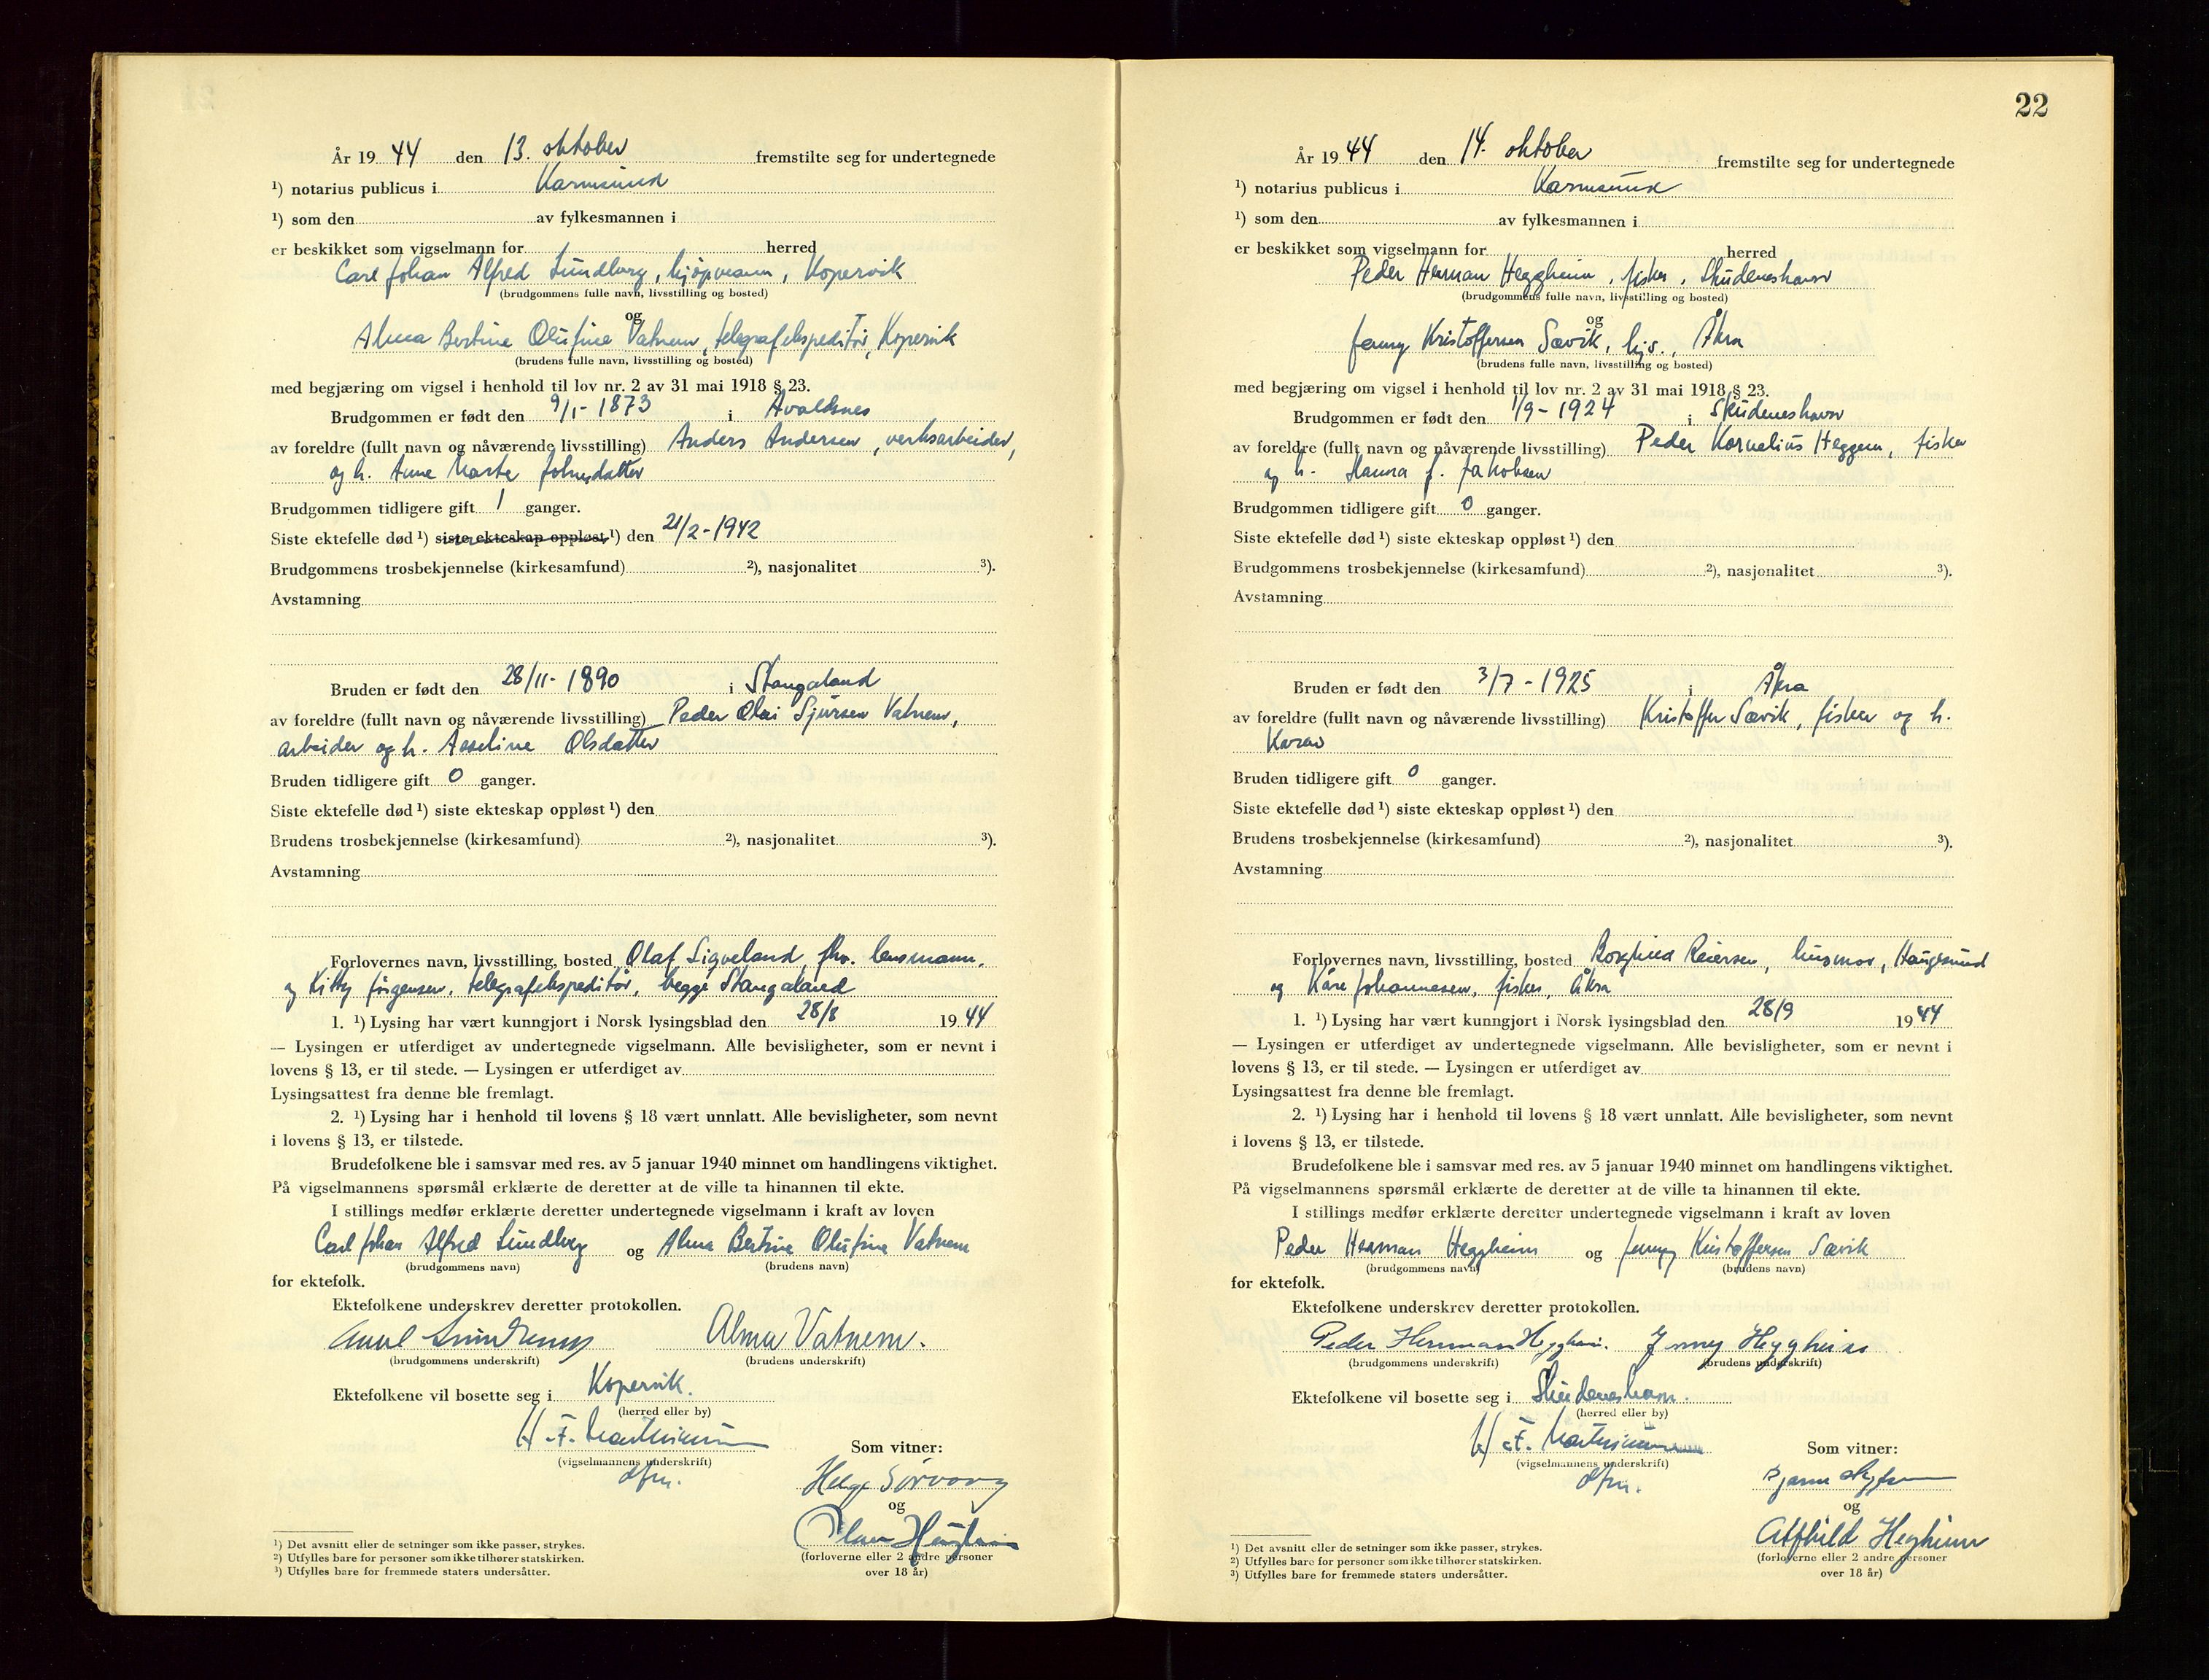 År 19 44 den 13. oktober fremstilte seg for undertegnede
¹) notarius publicus i Karmsund
¹) som den av fylkesmannen i
er beskikket som vigselmann for herred
Carl Johan Alfred Lundberg, kjøpmann, Kopervik
(brudgommens fulle navn, livsstilling og bosted)
og
Alma Bertine Olufine Vatnem, telegrafekspeditør, Kopervik
(brudens fulle navn, livsstilling og bosted)
med begjæring om vigsel i henhold til lov nr. 2 av 31 mai 1918 § 23.
Brudgommen er født den 9/1-1873 i Avaldsnes
av foreldre (fullt navn og nåværende livsstilling) Anders Andersen, verksarbeider,
og h. Anne Marta Johnsdatter
Brudgommen tidligere gift 1 ganger.
Siste ektefelle død ¹) siste ekteskap oppløst ¹) den 21/2-1942
Brudgommens trosbekjennelse (kirkesamfund) ²), nasjonalitet ³).
Avstamning
Bruden er født den 28/11-1890 i Stangaland
av foreldre (fullt navn og nåværende livsstilling) Peder Olai Sjursen Vatnem,
arbeider og h. Asseline Olsdatter
Bruden tidligere gift 0 ganger.
Siste ektefelle død ¹) siste ekteskap oppløst ¹) den
Brudens trosbekjennelse (kirkesamfund) ²), nasjonalitet ³).
Avstamning
Forlovernes navn, livsstilling, bosted Olaf Sigveland, fhv. lensmann,
og Kitty Jørgensen, telegrafekspeditør, begge Stangaland
1. ¹) Lysing har vært kunngjort i Norsk lysingsblad den 28/8 19 44
— Lysingen er utferdiget av undertegnede vigselmann. Alle bevisligheter, som er nevnt i
lovens § 13, er til stede. — Lysingen er utferdiget av
Lysingsattest fra denne ble fremlagt.
2. ¹) Lysing har i henhold til lovens § 18 vært unnlatt. Alle bevisligheter, som nevnt
i lovens § 13, er tilstede.
Brudefolkene ble i samsvar med res. av 5 januar 1940 minnet om handlingens viktighet.
På vigselmannens spørsmål erklærte de deretter at de ville ta hinannen til ekte.
I stillings medfør erklærte deretter undertegnede vigselmann i kraft av loven
Carl Johan Alfred Lundberg og Alma Bertine Olufine Vatnem
(brudgommens navn) (brudens navn)
for ektefolk.
Ektefolkene underskrev deretter protokollen.
Lundberg Alma Vatnem.
(brudgommens underskrift) (brudens underskrift)
Ektefolkene vil bosette seg i Kopervik.
(herred eller by)
(vigselmannens underskrift)
dfm.
Som vitner:
Helge
og
(forloverne eller 2 andre personer
over 18 år)
¹) Det avsnitt eller de setninger som ikke passer, strykes.
²) Utfylles bare for personer som ikke tilhører statskirken.
³) Utfylles bare for fremmede staters undersåtter.
22
År 19 44 den 14. oktober fremstilte seg for undertegnede
¹) notarius publicus i Karmsund
¹) som den av fylkesmannen i
er beskikket som vigselmann for herred
Peder Herman Heggheim, fisker, Skudeneshavn
(brudgommens fulle navn, livsstilling og bosted)
og
Jenny Kristoffersen Sævik, hjs., Åkra
(brudens fulle navn, livsstilling og bosted)
med begjæring om vigsel i henhold til lov nr. 2 av 31 mai 1918 § 23.
Brudgommen er født den 1/9-1924 i Skudeneshavn
av foreldre (fullt navn og nåværende livsstilling) Peder Kornelius Heggem, fisker
og h. J. Jakobsen
Brudgommen tidligere gift 0 ganger.
Siste ektefelle død ¹) siste ekteskap oppløst ¹) den
Brudgommens trosbekjennelse (kirkesamfund) ²), nasjonalitet ³).
Avstamning
Bruden er født den 3/7-1925 i Åkra
av foreldre (fullt navn og nåværende livsstilling) Kristoffer Sævik, fisker og h.
Karen
Bruden tidligere gift 0 ganger.
Siste ektefelle død ¹) siste ekteskap oppløst ¹) den
Brudens trosbekjennelse (kirkesamfund) ²), nasjonalitet ³).
Avstamning
Forlovernes navn, livsstilling, bosted Borghild Reiersen, husmor, Haugesund
og Kåre Johannesen, fisker, Åkra
1. ¹) Lysing har vært kunngjort i Norsk lysingsblad den 28/9 19 44
— Lysingen er utferdiget av undertegnede vigselmann. Alle bevisligheter, som er nevnt i
lovens § 13, er til stede. — Lysingen er utferdiget av
Lysingsattest fra denne ble fremlagt.
2. ¹) Lysing har i henhold til lovens § 18 vært unnlatt. Alle bevisligheter, som nevnt
i lovens § 13, er tilstede.
Brudefolkene ble i samsvar med res. av 5 januar 1940 minnet om handlingens viktighet.
På vigselmannens spørsmål erklærte de deretter at de ville ta hinannen til ekte.
I stillings medfør erklærte deretter undertegnede vigselmann i kraft av loven
Peder Herman Heggheim og Jenny Kristoffersen Sævik
(brudgommens navn) (brudens navn)
for ektefolk.
Ektefolkene underskrev deretter protokollen.
Peder Herman Heggheim. Jenny Heggheim
(brudgommens underskrift) (brudens underskrift)
Ektefolkene vil bosette seg i Skudeneshavn.
(herred eller by)
(vigselmannens underskrift)
dfm.
Som vitner:
Bjarne
og
Alfhild Heggheim
(forloverne eller 2 andre personer
over 18 år)
¹) Det avsnitt eller de setninger som ikke passer, strykes.
²) Utfylles bare for personer som ikke tilhører statskirken.
³) Utfylles bare for fremmede staters undersåtter.